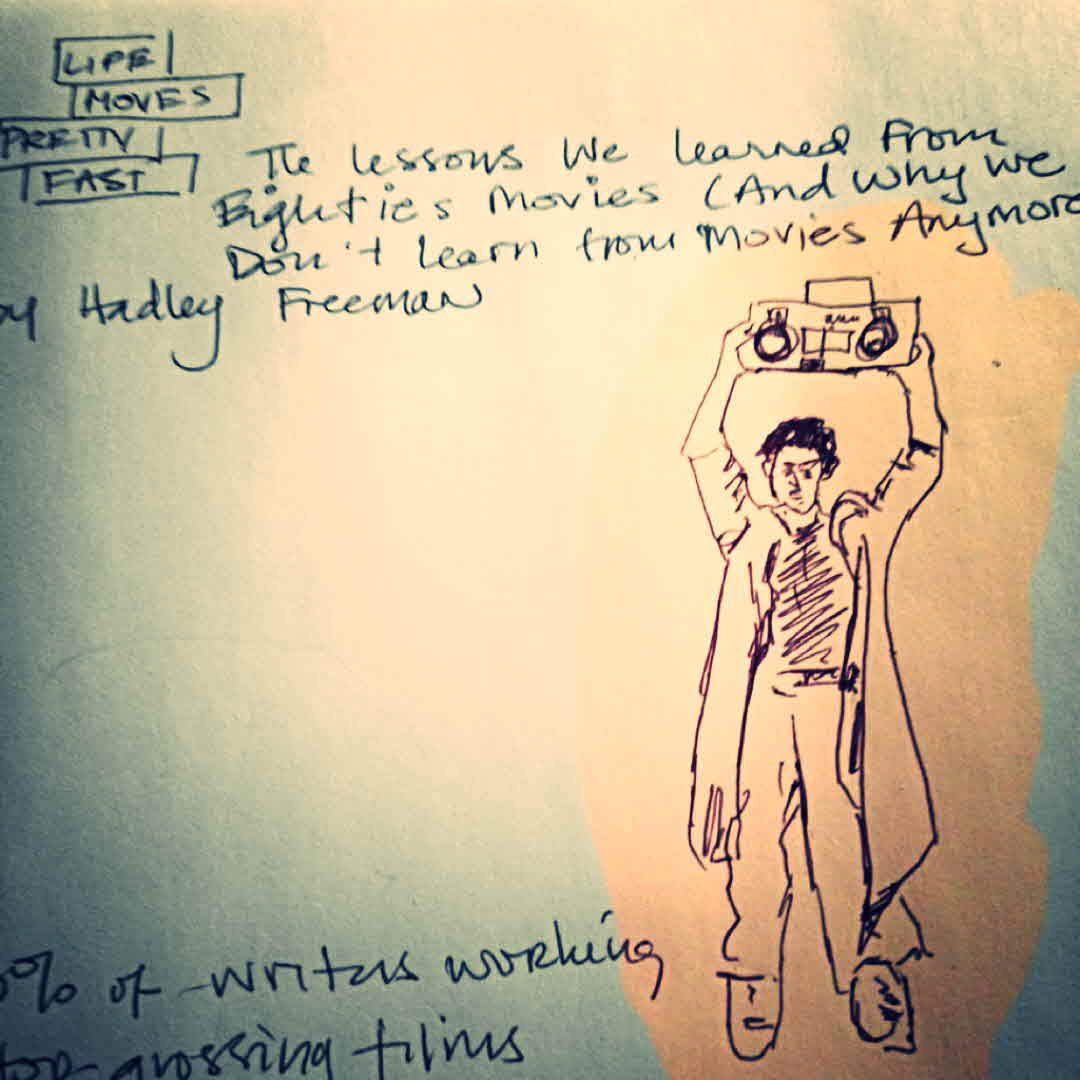 LIFE
MOVES
PRETTY
FAST
The lessons We learned From
Eighties Movies (And why we
Don't learn from Movies Anymore
by Hadley Freeman
% of writers working
top-grossing films